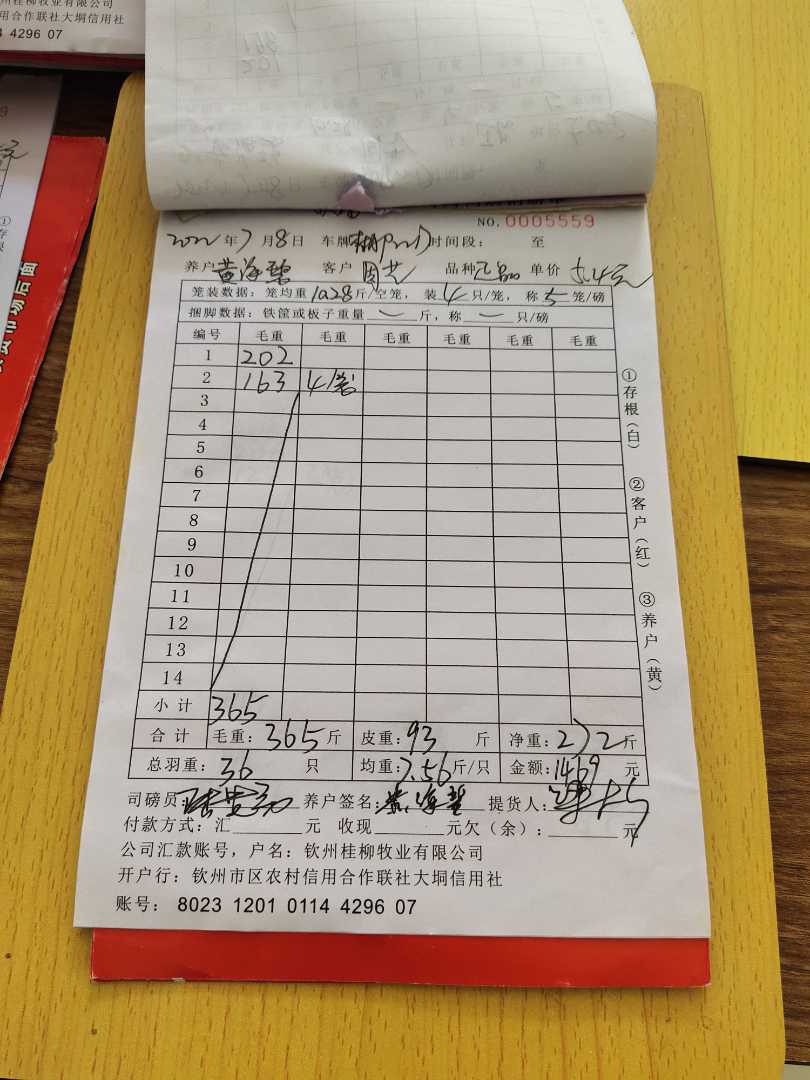 州桂柳牧业有限公司
用合作联社大垌信用社
4 4296 07
NO. 0005559
2022年7月8日 车牌 时间段: 至
养户 黄海 客户 周 品种 单价 5.4元
笼装数据: 笼均重 斤/空笼, 装4只/笼, 称5笼/磅
捆脚数据: 铁筐或板子重量 斤, 称 只/磅
编号 毛重 毛重 毛重 毛重 毛重 毛重
1 202
2 163 4笼
3
4
5
6
7
8
9
10
11
12
13
14
小计 365
合计 毛重: 365斤 皮重: 93斤 净重: 272斤
总羽重: 36只 均重: 7.56斤/只 金额: 1469元
①存根(白)
②客户(红)
③养户(黄)
司磅员: 养户签名: 黄海 提货人:
付款方式: 汇 元 收现 元欠(余): 元
公司汇款账号, 户名: 钦州桂柳牧业有限公司
开户行: 钦州市区农村信用合作联社大垌信用社
账号: 8023 1201 0114 4296 07